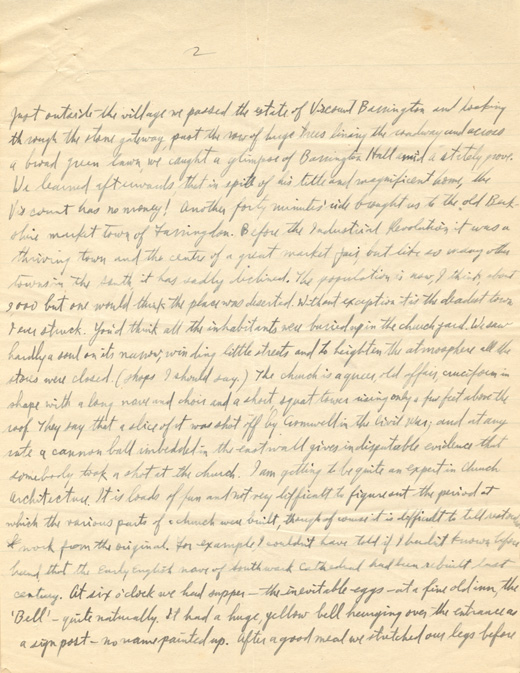 2
Just outside the village we passed the estate of Viscount Barrington and looking
through the stone gateway, past the row of huge trees lining the roadway and across
a broad green lawn, we caught a glimpse of Barrington Hall amid a stately grove.
We learned afterwards that in spite of his title and magnificent home, the
Viscount has no money! Another forty minutes' ride brought us to the old Berk-
shire market town of Farringdon. Before the Industrial Revolution it was a
thriving town and the centre of a great market fair, but like so many other
towns in the south it has sadly declined. The population is now, I think, about
3000 but one would think the place was deserted. Without exception it is the deadest town
I ever struck. You'd think all the inhabitants were buried up in the church yard. We saw
hardly a soul on its narrow, winding little streets and to heighten the atmosphere all the
stores were closed. (shops I should say.) The church is a queer, old affair, cruciform in
shape with a long nave and choir and a short squat tower rising only a few feet above the
roof. They say that a slice of it was shot off by Cromwell in the Civil War; and at any
rate a cannon ball imbedded in the east wall gives indisputable evidence that
somebody took a shot at the church. I am getting to be quite an expert in church
architecture. It is loads of fun and not very difficult to figure out the period at
which the various parts of a church were built, though of course it is difficult to tell restored
work from the original. For example I wouldn't have told if I hadn't known before
hand that the Early English nave of Southwark Cathedral had been rebuilt last
century. At six o'clock we had supper – the inevitable eggs – at a fine old inn, the
'Bell' – quite naturally. It had a huge, yellow bell hanging over the entrance as
a sign post – no name painted up. After a good meal we stretched our legs before